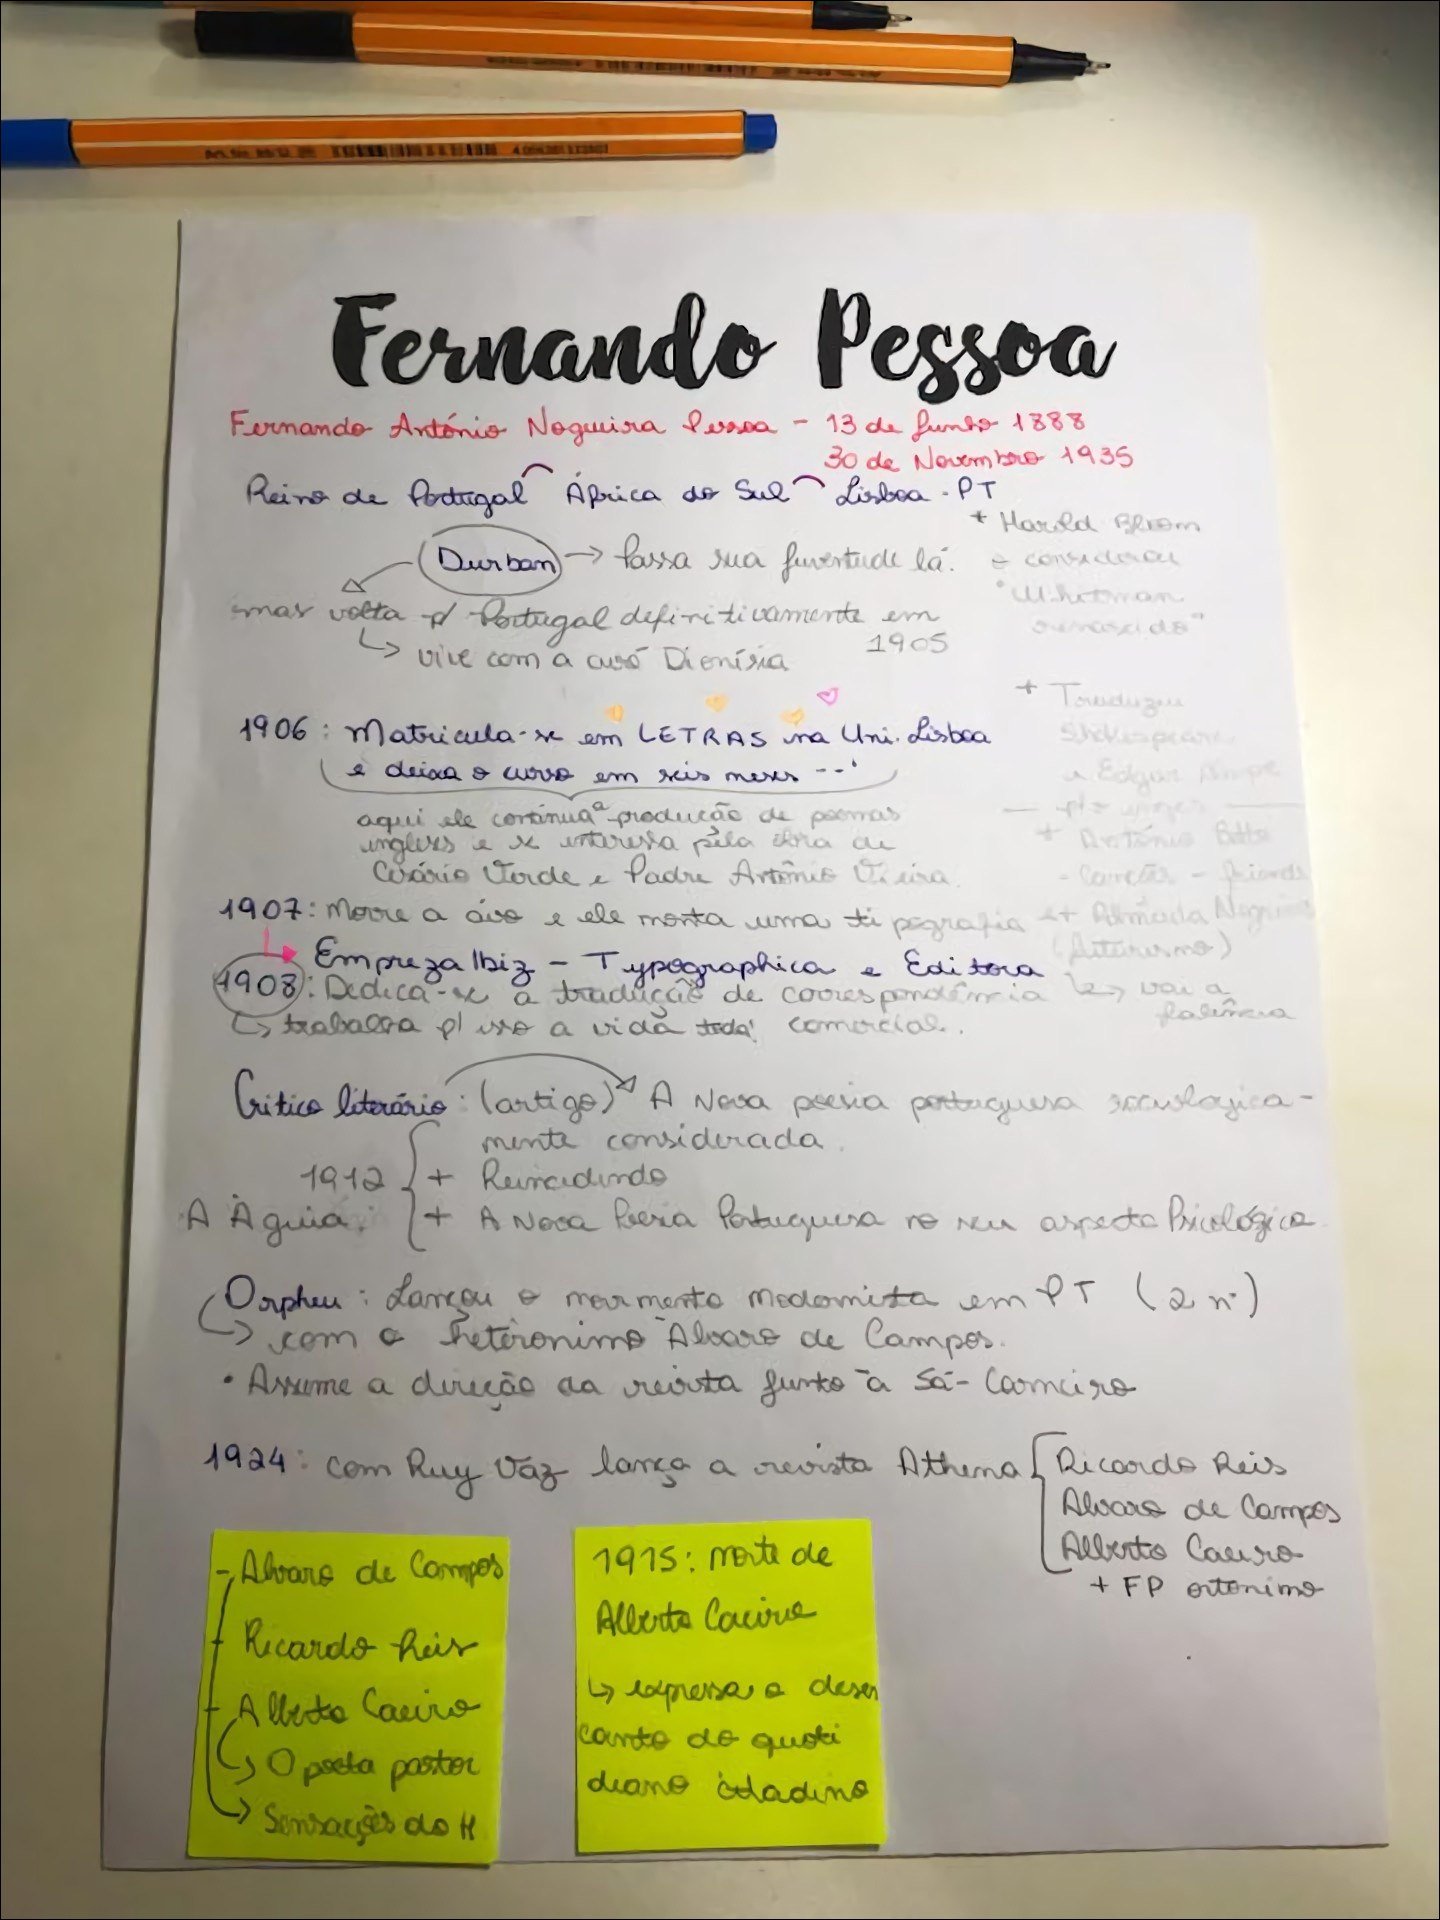 Fernando Pessoa
Fernando António Nogueira Pessoa - 13 de Junho 1888
30 de Novembro 1935
Reino de Portugal África do Sul Lisboa - PT
+ Harold Bloom
o considerou
"Whitman
renascido"
Durban → Passa sua juventude lá.
mas volta p/ Portugal definitivamente em
1905
↳ vive com a avó Dionísia
+ Traduziu
Shakespeare
e Edgar
1906: Matricula-se em LETRAS na Uni. Lisboa
e deixa o curso em seis meses --'
aqui ele continua a produção de poemas
ingleses e se interessa pela obra de
Cesário Verde e Padre António Vieira.
+ António Botto
- Canções -
1907: Morre a avó e ele monta uma tipografia
+ Almada
(futurismo)
Empreza Ibiz - Typographica e Editora
↳ vai a
falência
1908: Dedica-se a tradução de correspondência
↳ trabalha p/ isso a vida toda! comercial.
Crítico literário: (artigo) A Nova poesia portuguesa sociologica-
mente considerada.
1912 + Reincidindo
A Águia: + A Nova Poesia Portuguesa no seu aspecto Psicológico
Orpheu: Lançou o movimento modernista em PT (2 nº)
↳ com o heterónimo Álvaro de Campos.
• Assume a direção da revista junto à Sá-Carneiro
1924: com Ruy Vaz lança a revista Athena
Ricardo Reis
Alvaro de Campos
Alberto Caeiro
+ FP ortonimo
- Alvaro de Campos
- Ricardo Reis
- Alberto Caeiro
↳ O poeta pastor
↳ Sensações do H
1915: morte de
Alberto Caeiro
↳ expressa o desen
canto do quoti
diano citadino